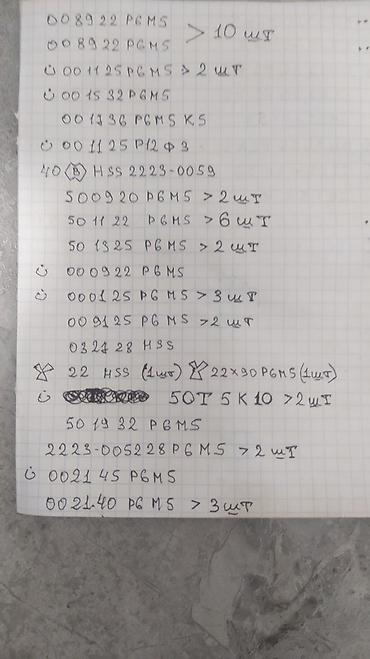 008922 Р6М5
008922 Р6М5 > 10 шт
001125 Р6М5 > 2 шт
001532 Р6М5
001736 Р6М5 К5
001125 Р12Ф3
40 В HSS 2223-0059
500920 Р6М5 > 2 шт
501122 Р6М5 > 6 шт
501325 Р6М5 > 2 шт
000922 Р6М5
000125 Р6М5 > 3 шт
009125 Р6М5 > 2 шт
032728 HSS
22 HSS (1шт) 22×90 Р6М5 (1шт)
50Т 5К10 > 2 шт
501932 Р6М5
2223-005228 Р6М5 > 2 шт
002145 Р6М5
0021.40 Р6М5 > 3 шт